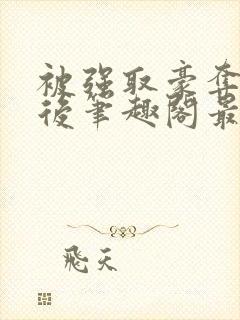 被强取豪夺
后笔趣阁最
飛天